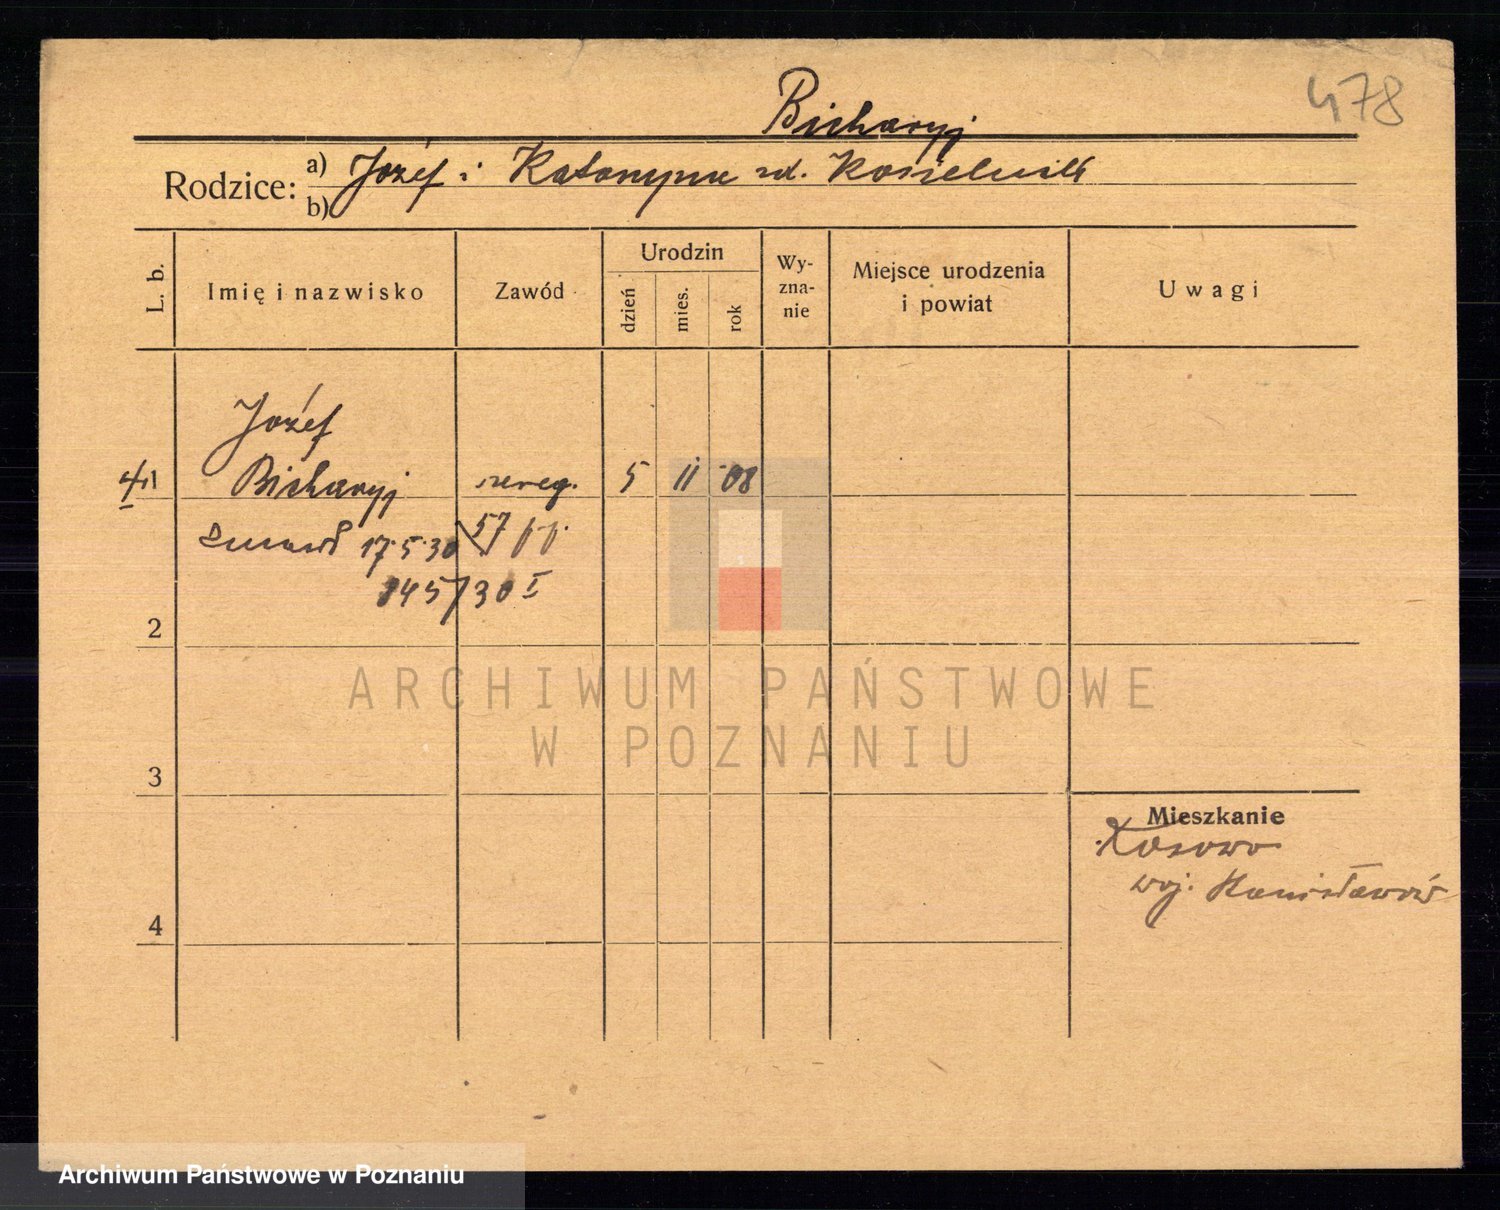 478
Bicharyj
Rodzice: a) Józef i Katarzyna zd. Kosielnik
b)
L. b.
Imię i nazwisko
Zawód
Urodzin
dzień
mies.
rok
Wy-
zna-
nie
Miejsce urodzenia
i powiat
Uwagi
Józef
1 Bicharyj szereg. 5 II 08
17.5.30 57 pp.
845/30 I
2
3
Mieszkanie
Kosowo
woj. Stanisławów
4
ARCHIWUM PAŃSTWOWE
W POZNANIU
Archiwum Państwowe w Poznaniu